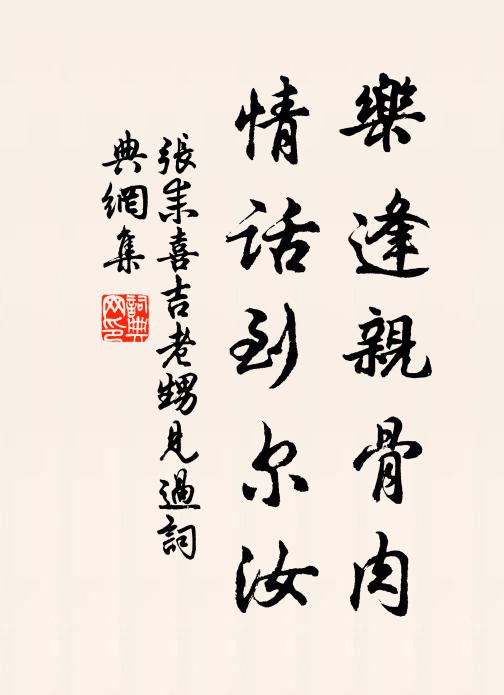 樂逢親骨肉
情話到尔汝
張耒喜吉老甥見過詞
典網集
詞典
网印